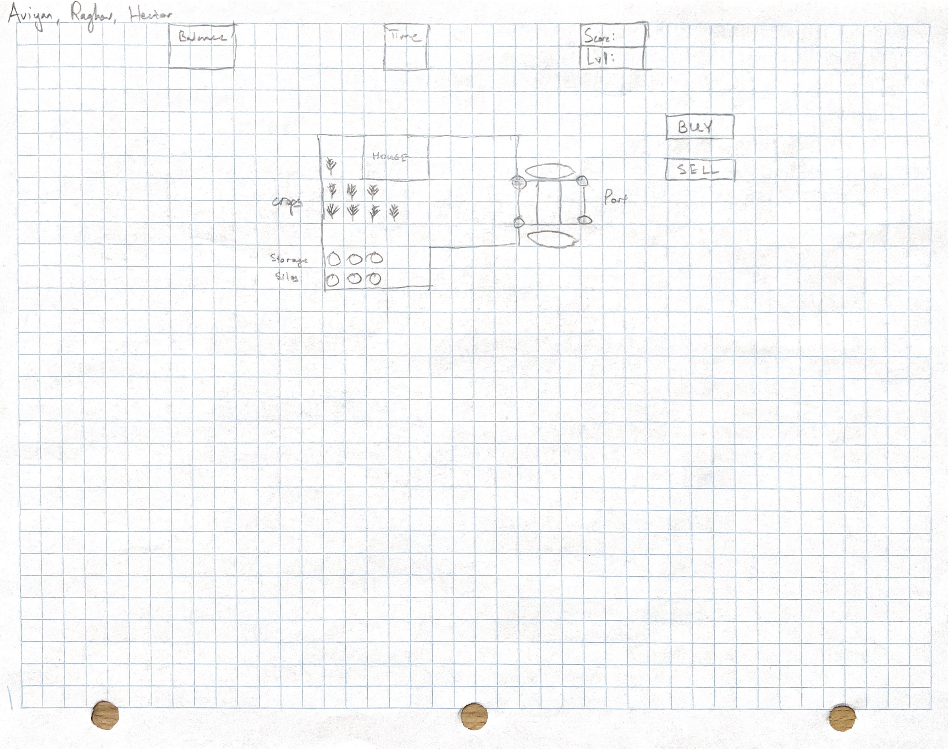 Aviyan, Raghav, Hector
Balance
Time
Score:
Lvl:
BUY
HOUSE
SELL
crops
Port
Storage
Silos